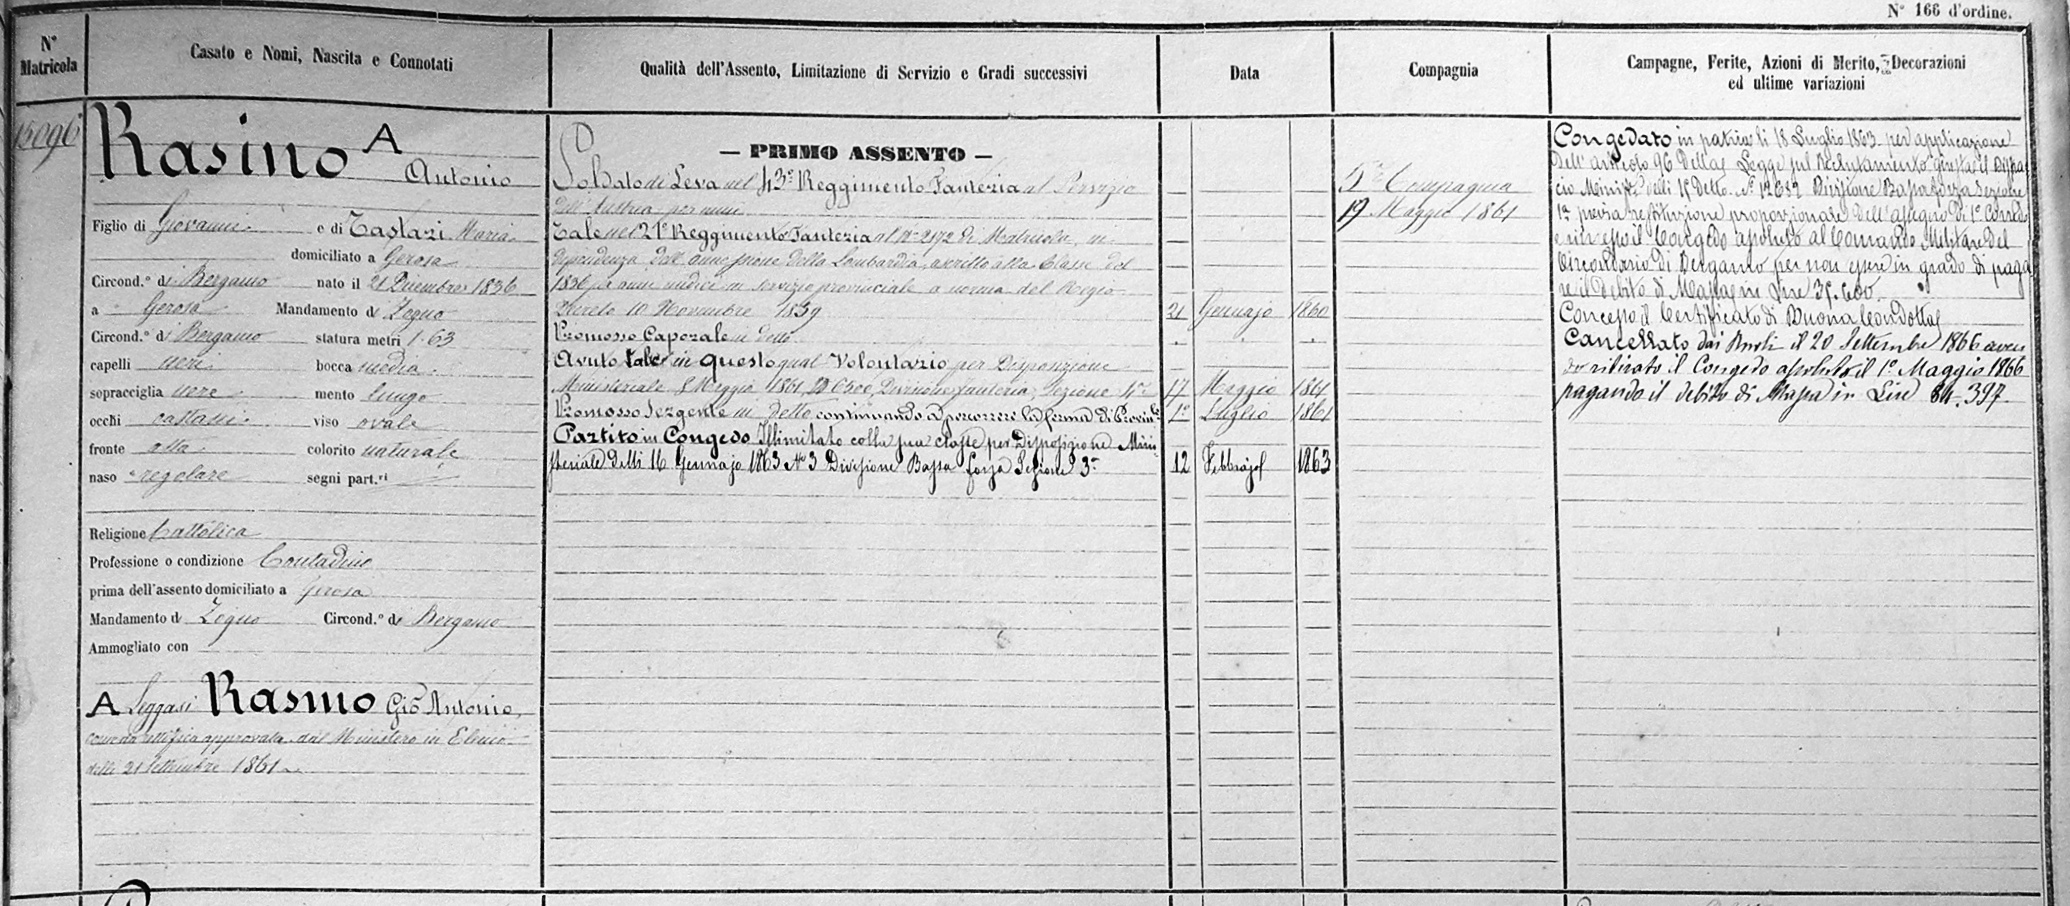 N° 166 d'ordine.
N° Matricola
Casato e Nomi, Nascita e Connotati
Qualità dell'Assento, Limitazione di Servizio e Gradi successivi
Data
Compagnia
Campagne, Ferite, Azioni di Merito, Decorazioni
ed ultime variazioni
15096
Rasino A
Antonio
Figlio di Giovanni e di Tastari Maria
domiciliato a Gerosa
Circond.° di Bergamo nato il 21 Dicembre 1836
a Gerosa Mandamento di Zogno
Circond.° di Bergamo statura metri 1.63
capelli neri bocca media
sopracciglia nere mento lungo
occhi castani viso ovale
fronte alta colorito naturale
naso regolare segni part.ri
Religione Cattolica
Professione o condizione Contadino
prima dell'assento domiciliato a Gerosa
Mandamento di Zogno Circond.° di Bergamo
Ammogliato con
A Leggasi Rasmo Gio Antonio,
come da rettifica approvata dal Ministero in Elenco
delli 21 Settembre 1861
— PRIMO ASSENTO —
Soldato di Leva nel 43° Reggimento Fanteria al Servizio
dell'Austria per anni
Tale nel 21° Reggimento Fanteria al N° 2192 di Matricola, in
dipendenza dell'annessione della Lombardia, ascritto alla Classe del
1836 per anni undici in servizio provinciale a norma del Regio
Decreto 10 Novembre 1859 21 Gennajo 1860
Promosso Caporale in detto
Avuto tale in questo qual Volontario per Disposizione
Ministeriale 8 Maggio 1861 N 6500, Divisione fanteria, Sezione 17 Maggio 1861
Promosso Sergente in detto continuando a percorrere la ferma di Provin.le 1° Luglio 1861
Partito in Congedo Illimitato colla sua classe per Disposizione Mini-
steriale delli 16 Gennajo 1863 N° 3 Divisione Bassa forza Sezione 3a 12 Febbrajo 1863
Compagnia
19 Maggio 1861
Congedato in patria li 18 Luglio 1863 per applicazione
dell'articolo 96 della Legge sul Reclutamento, giusta il Dispac-
cio Minist. delli 15 detto N° 12632 Divisione Bassa forza Sezione
1a previa restituzione proporzionale dell'assegno di 1° Corredo
e rimesso il Congedo assoluto al Comando Militare del
Circondario di Bergamo per non essere in grado di paga-
re il debito di Massa in Lire 35.600.
Concesso il Certificato di Buona Condotta
Cancellato dai Ruoli il 20 Settembre 1866 aven-
do ritirato il Congedo assoluto il 1° Maggio 1866
pagando il debito di Massa in Lire 34.397